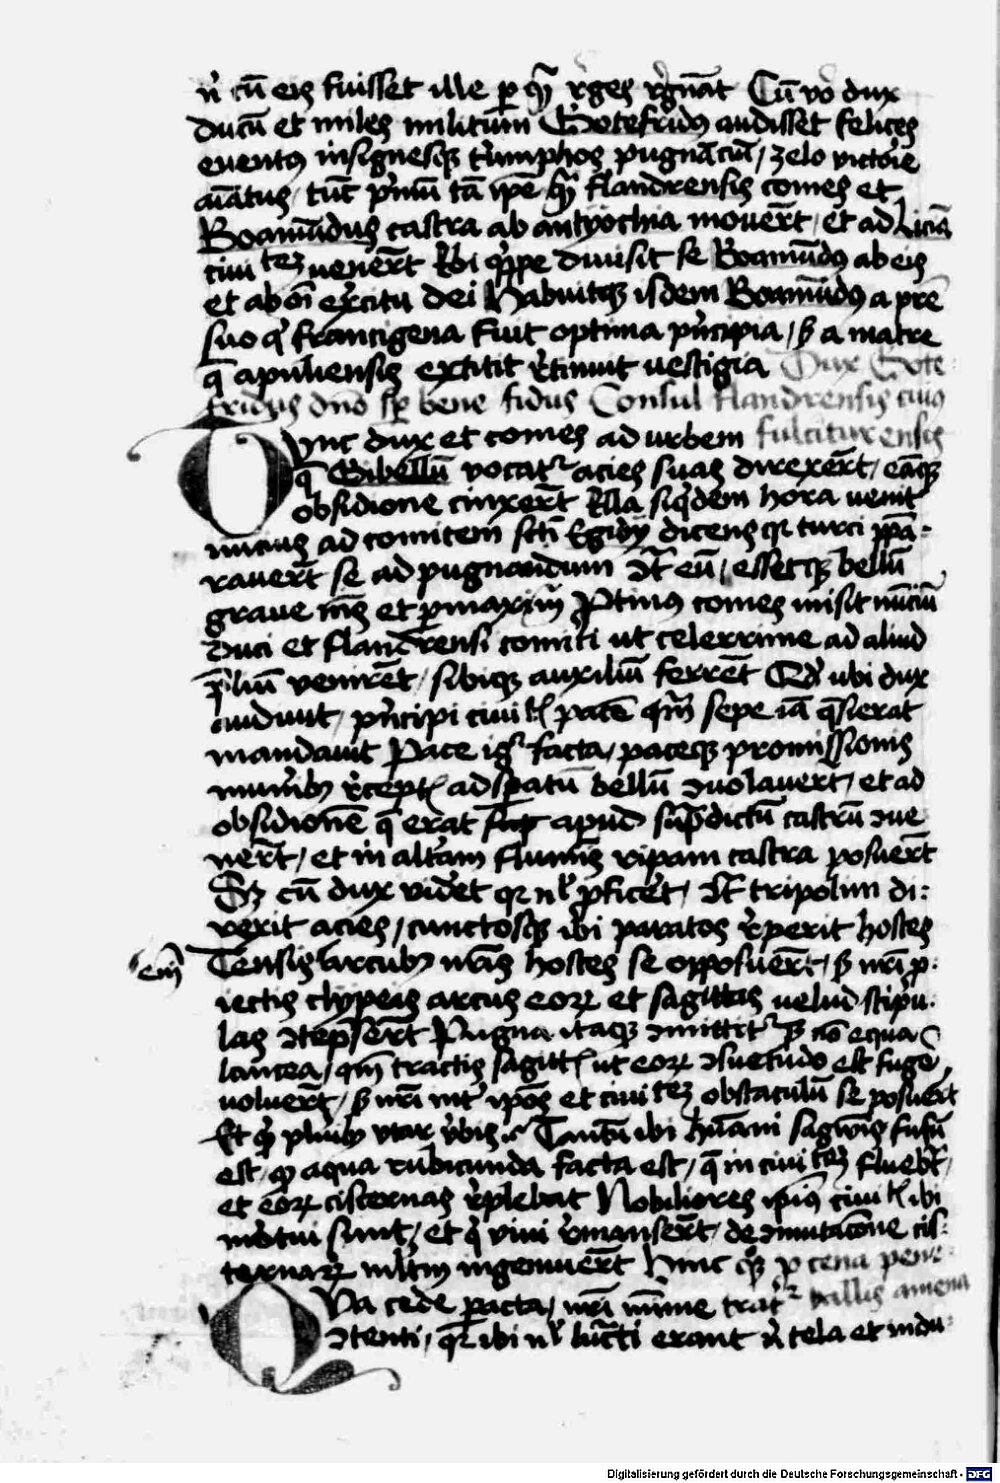 nisi cum eis fuisset ille per quem reges regnant Cum vero dux
ducum et miles militum Gotefridus audisset felices
eventus insignesque triumphos pugnancium / zelo victorie
animatus / tunc primum tam ipse quam flandrensis comes et
Boamundus castra ab antyochia moverunt / et ad Liciam
civitatem venerunt Ibi quippe divisit se Boamundus ab eis
et ab omni exercitu dei Habuitque isdem Boamundus a patre
suo qui francigena fuit optima principia / sed a matre
que apuliensis extitit retinuit vestigia Dux Gote
fridus domino semper bene fidus Consul flandrensis cuius
Tunc dux et comes ad urbem fulcitur ensis
que Gibellum vocatur acies suas direxerunt / eamque
obsidione cinxerunt Illa siquidem hora venit
nuncius ad comitem sancti Egidy dicens quia turci prepa
raverunt se ad pugnandum contra eum / essetque bellum
grave nimis et permaximum Protinus comes misit nuncium
duci et flandrensi comiti ut celerrime ad aliud
prelium venirent / sibique auxilium ferrent Quod ubi dux
audivit / principi civitatis pacem quam sepe iam quesierat
mandavit Pace igitur facta / paceque promissionis
muneribus receptis ad speratum bellum convolaverunt / et ad
obsidionem que erat apud supradictum castrum conve
nerunt / et in alteram fluminis ripam castra posuerunt
Sed cum dux videret quia nichil proficeret / contra tripolim di
rexit acies / cunctosque ibi paratos reperit hostes
Tensis enim arcubus nostris hostes se opposuerunt / sed nostri pro
iectis clypeis arcus eorum et sagittas velud stipu
las contempserunt Pugna itaque committitur sed non equa
lancea / quoniam tractis sagittis ut eorum consuetudo est fugere
voluerunt / sed nostri inter ipsos et civitatem obstaculum se posuerunt
Et quid pluribus utar verbis Tantum ibi humani sagwinis fusum
est / quod aqua rubicunda facta est / que in civitatem fluebat /
et eorum cisternas replebat Nobiliores ipsius civitatis ibi
mortui sunt / et qui vivi remanserunt / de inmutacione cis
ternarum multum ingemuerunt Hinc quoque pro cena pene
Hac cede peracta / nostri minime tratur vallis amena
contenti / quia ibi nichil lucrati erant nisi tela et indu